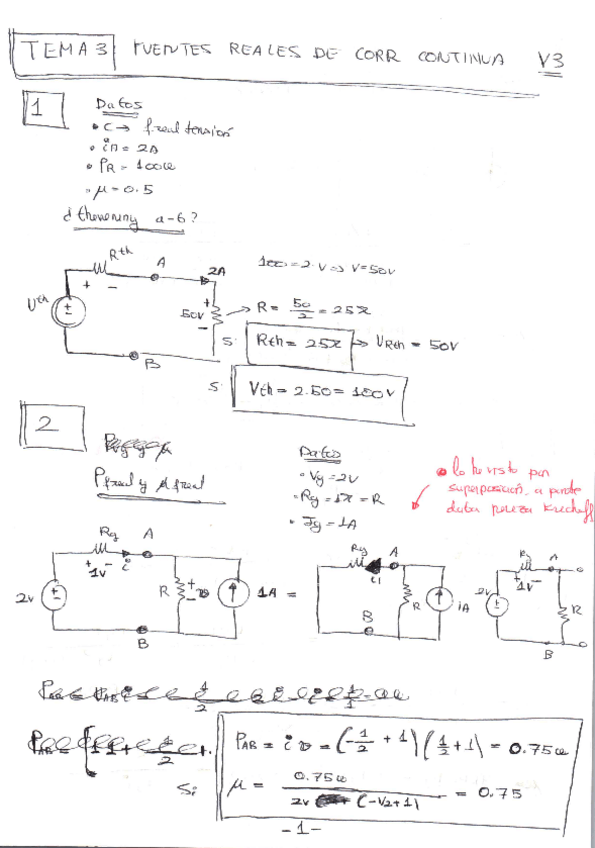 TEMA 3 FUENTES REALES DE CORR CONTINUA V3
1
Datos
• C → freal tensión
• in = 2A
• PR = 100w
• μ = 0.5
d thevening a-b?
Rth
A
2A
+ −
Vth
±
+
50V
−
B
100 = 2·V ⇒ V = 50V
→ R = 50/2 = 25Ω
S: Rth = 25Ω → URth = 50V
S: Vth = 2·50 = 100V
2
Pfreal y μ freal
Datos
• Vg = 2V
• Rg = 1Ω = R
• Ig = 1A
• lo he visto por
superposición, a parte
daba pereza Kirchoff
Rg
A
+ 1V −
i
2V
±
R
+
v
−
1A =
B
Rg
A
i1
R
1A
B
Rg
A
2V
±
+ 1V −
R
B
PAB = i v = (-1/2 + 1)(1/2 + 1) = 0.75w
Si
μ = 0.75w / 2V (-1/2+1) = 0.75
-1-